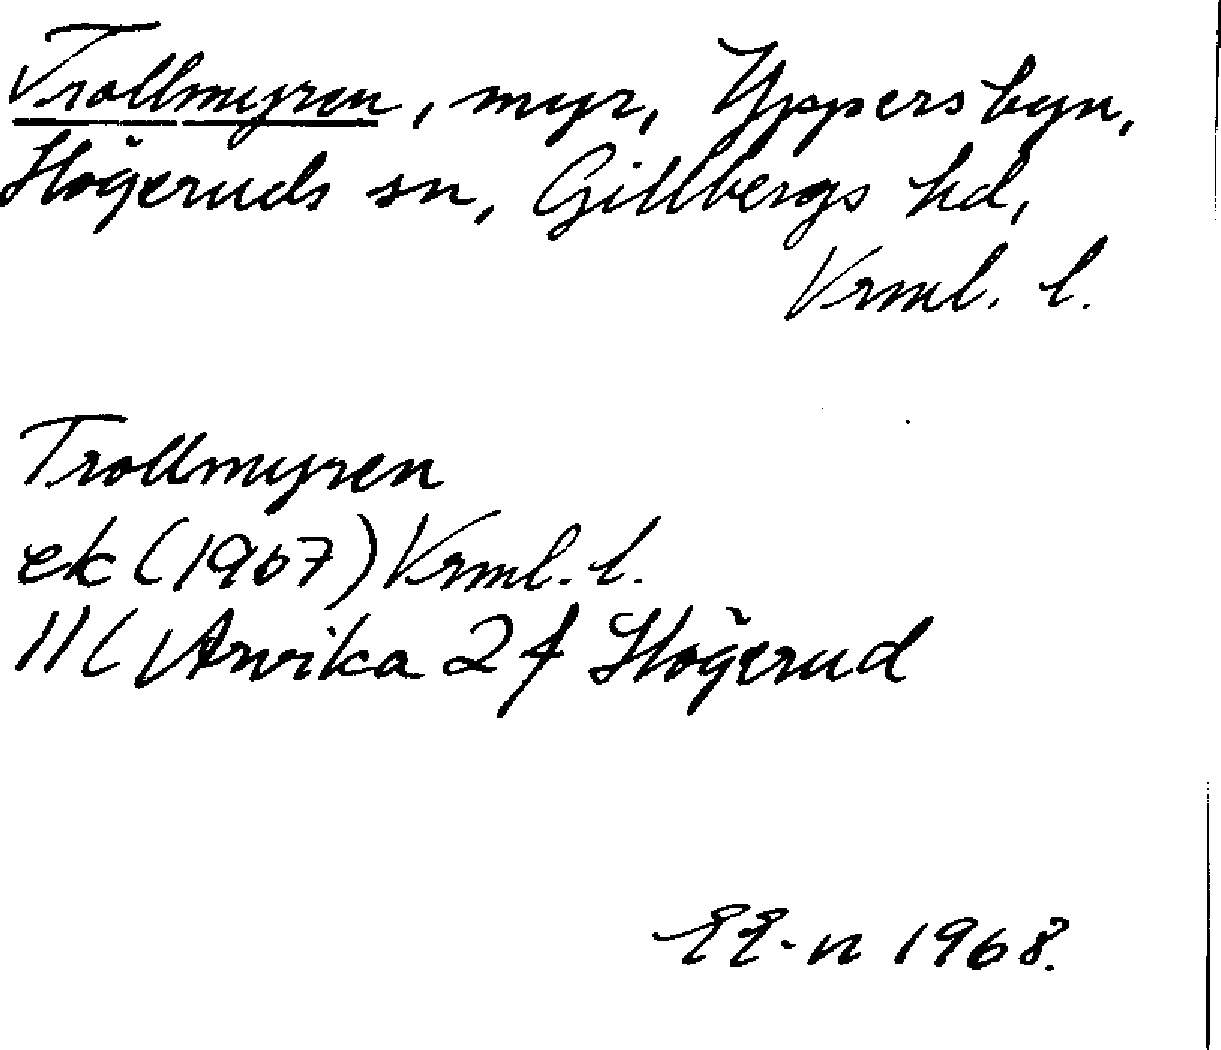 Trollmyren, myr, Yppersbyn,
Högeruds sn, Gillbergs hd,
Vrml. l.
Trollmyren
ek (1967) Vrml. l.
11C Arvika 2f Högerud
EE-n 1968.